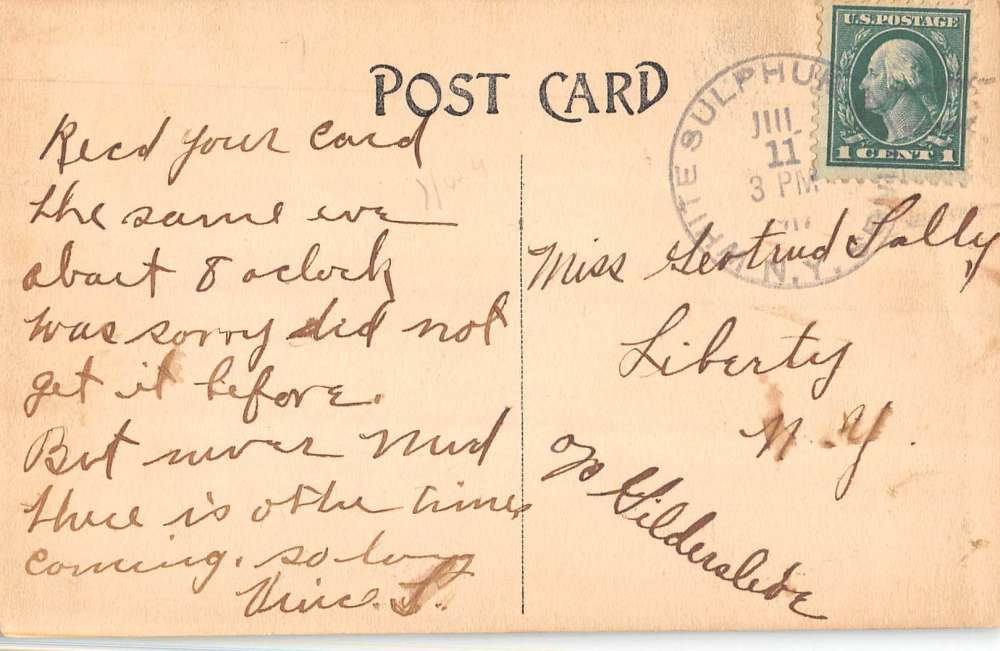 POST CARD
U.S. POSTAGE
1 CENT 1
WHITE SULPHUR
JUL
11
3 PM
N.Y.
Recd your card
the same eve
about 8 oclock
was sorry did not
get it before.
But never Mind
there is other times
coming. so long
Vince. L.
Miss Gertrud Lally
Liberty
N.Y.
c/o Gildersleve